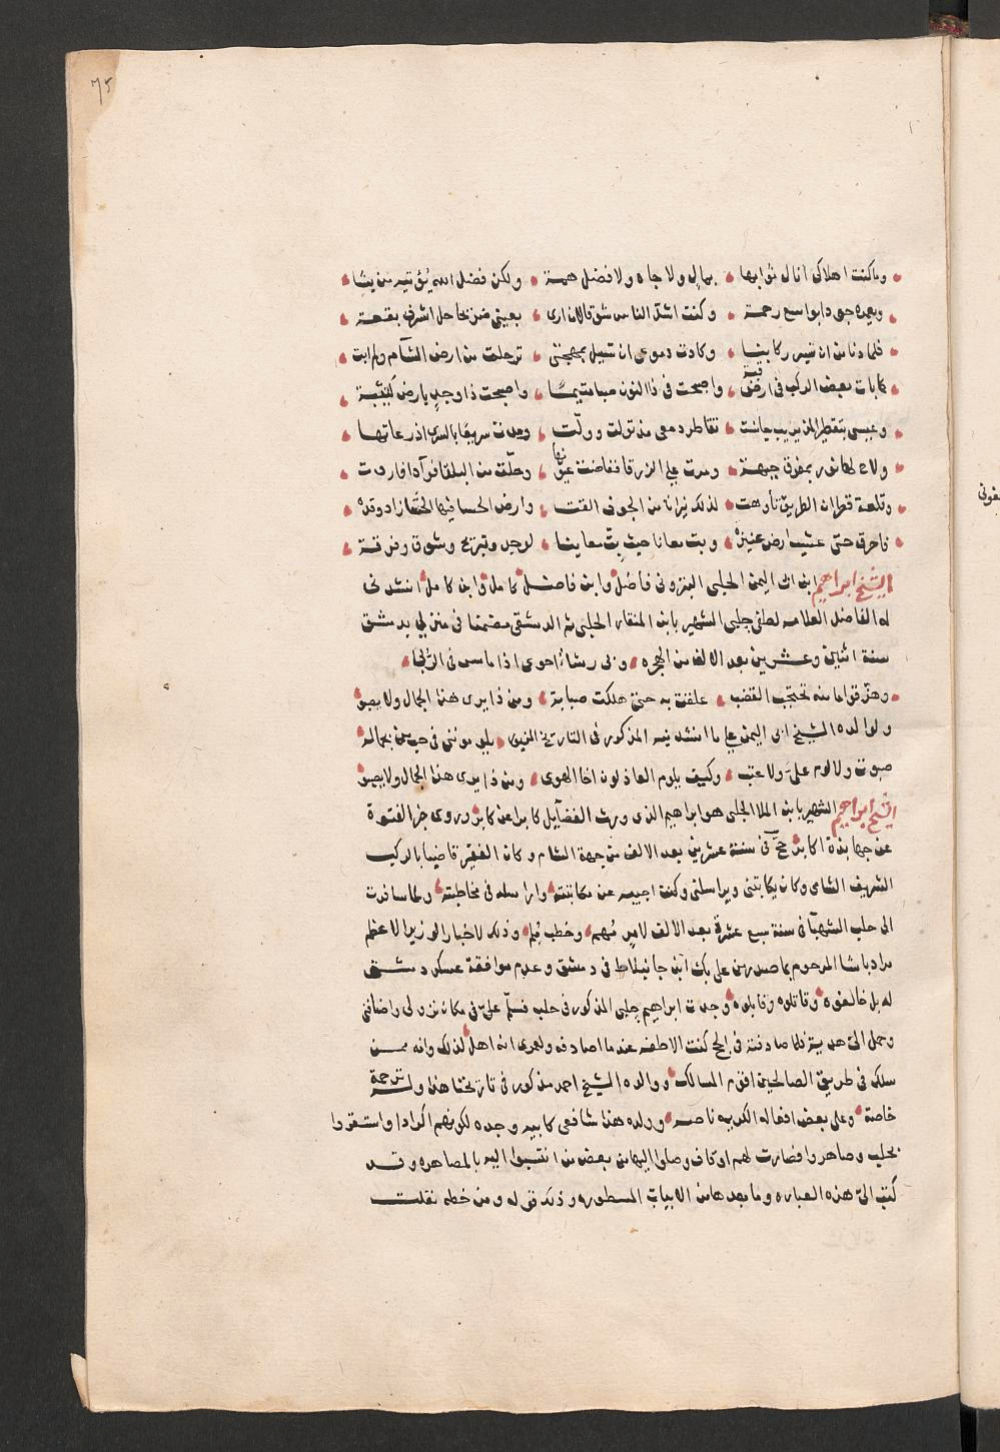 75
وما كنت اهلا كي انال ثوابها • بمال ولا جاه ولا فضل همة • ولكن فضل الله يؤتيه من يشا •
وبعده جى دابوا سع رحمة • وكنت اشد الناس شوقا لان ارى • بعينى من نحا حل اشرف بقعة •
فلما دنا من ان تسير ركابنا • وكادت دموعى ان تسيل بمهجتى • ترحلت من ارض الشآم ولم ابت •
كما بات بعض الركب فى ارض قبة • واصبحت فى ذا النون صبا متيما • واصبحت ذا وجد بارض
وعيسى بتقطير المزيريب جانست • تقاطر دمعى مذ تولت وولت • وجدت سريعا بالسرى اذرعاتها •
ولاء لها نور بمفرق جبهة • ومرت على الزرقا ففاضت عيونها • وحلّت من البلقا
وقلعة قطران الطريق تأوهت • لذلك نيرانا من الجوف القت • وارض الحسا فيها
فاحرق حتى عشب ارض عنيزة • وبت معانا حيث بت معاينا • لوجد وتبريح وشوق وفرقة •
الشيخ ابراهيم ابن ابى اليمن الحلبى البترونى فاضل وابن فاضل كامل وابن كامل انشدنى
له الفاضل العلامه لطفى جلبى الشهير بابن المنقار الحلبى ثم الدمشقى مضمنا فى منزلى بدمشق
سنة اثنين وعشرين بعد الالف من الهجره • وبى رشاء احوى اذا ماس فى الربا •
وهز قواما منه تحتجب القضب • علقت به حتى هلكت صبابة • ومن ذا يرى هذا الجمال ولا يصبو
ولوالده الشيخ ابى اليمن على ما انشدنيه المذكور فى التاريخ المزبور • يلومونى فى حب من بجماله
صبوت ولا لوم على ولا عتب • وكيف يلوم العاذلون اخا الهوى • ومن ذا يرى هذا الجمال ولا يصبو
الشيخ ابراهيم الشهير بابن الملا الحلبى هو ابراهيم الذى ورث الفضآيل كابرا عن كابر وروى خبر الفتوة
عن جهابذة اكابر حج فى سنة عشرين بعد الالف من جهة الشام وكان الفقير قاضيا بالركب
الشريف الشامى وكان يكاتبنى ويراسلنى وكنت اجيبه عن مكاتبته واراسله فى مخاطبته ولما سافرت
الى حلب الشهبآء فى سنة سبع عشرة بعد الالف لامر مهم وخطب ملم وذلك لاخبار الوزير الاعظم
مراد باشا المرحوم بما صدر من على بك ابن جانبلاط فى دمشق وعدم موافقة عسكر دمشق
له بل خالفوه وقاتلوه وقابلوه وجدت ابراهيم جلبى المذكور فى حلب فسلم على فى مكان نزولى واضافنى
وحمل الى هدية فلما صادفته فى الحج كنت الاطفه عندما اصادفه ولعمرى انه اهل لذلك وانه ممن
سلك فى طريق الصالحين اقوم المسالك ووالده الشيخ احمد مذكور فى تاريخنا هذا وله ترجمة
خاصة وعلى بعض افعاله الكريمه ناصه وولده هذا شافعى كابيه وجده لكونهم اكرادا واستقروا
بحلب وصاهروا فصارت لهم اوقاف وصلوا اليها من بعض من انتسبوا اليه بالمصاهره وقد
كتب الى هذه العباره وما بعدها من الابيات المسطوره وذلك قوله ومن خطه نقلت